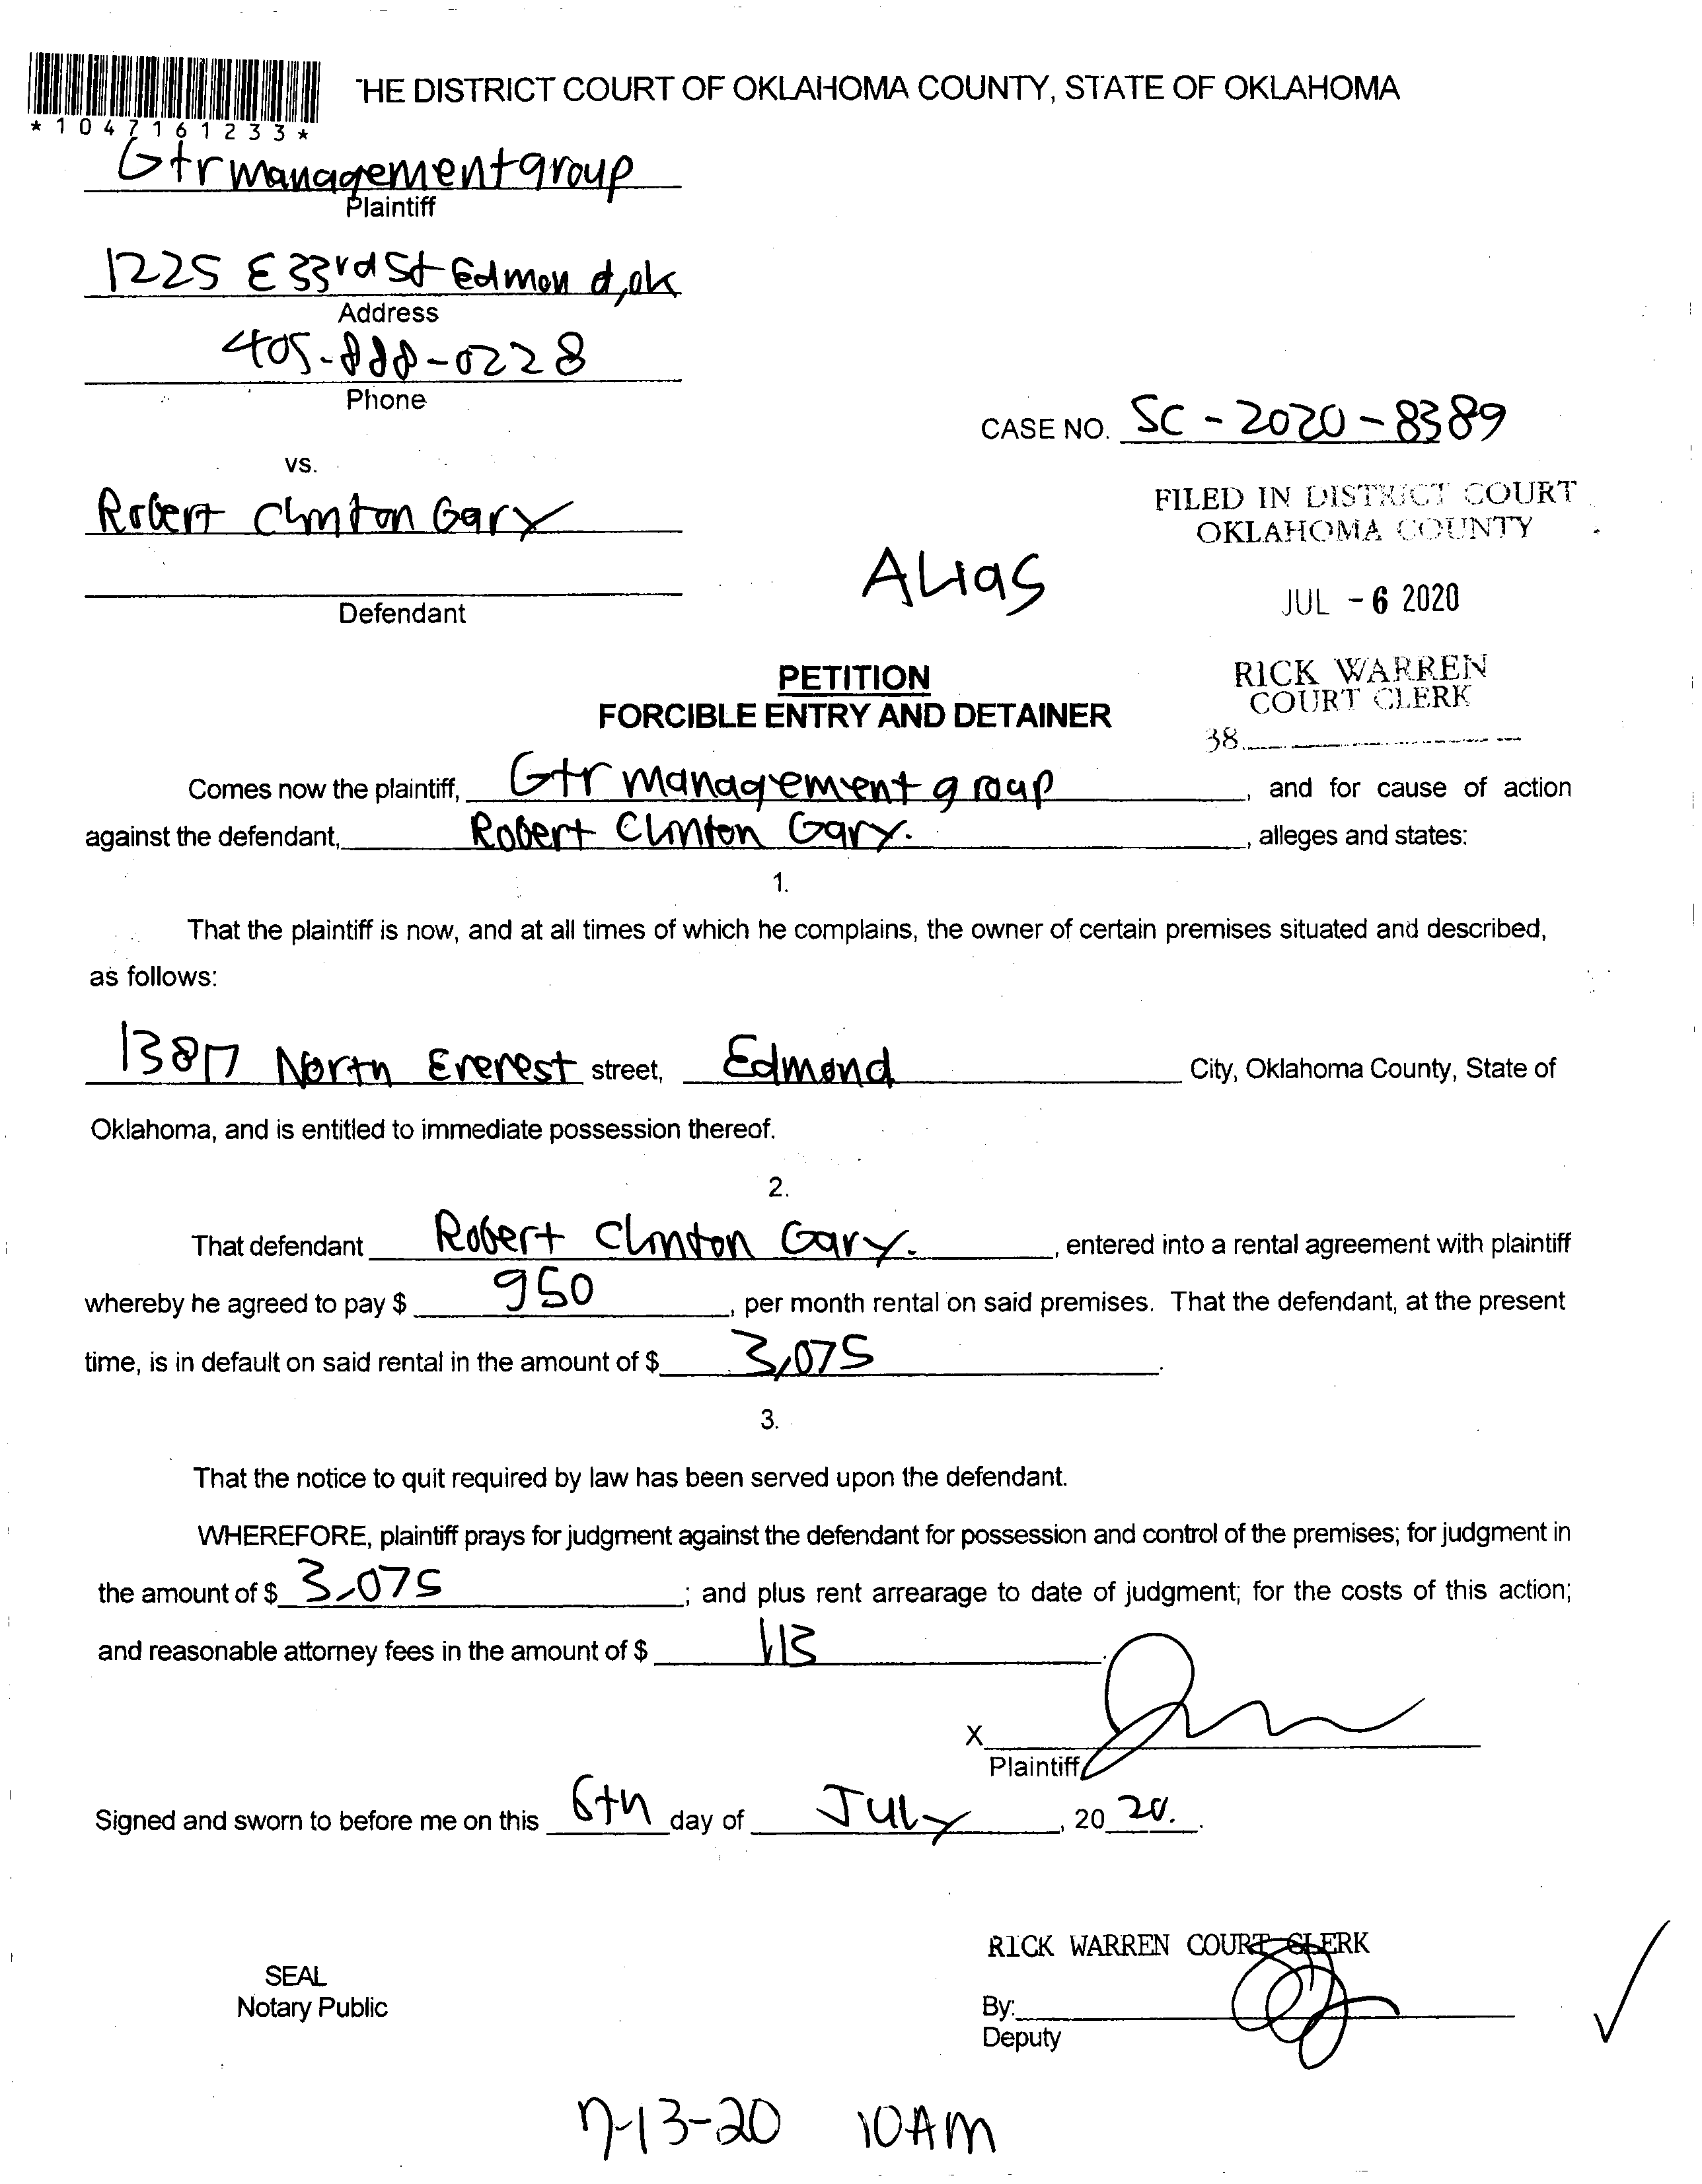 HE DISTRICT COURT OF OKLAHOMA COUNTY, STATE OF OKLAHOMA
*1047161233*
Gtr management group
Plaintiff
1225 E 33rd St Edmond, ok
Address
405-888-0228
Phone
CASE NO. SC - 2020 - 8389
vs.
FILED IN DISTRICT COURT
OKLAHOMA COUNTY
Robert Clinton Gary
Alias
JUL - 6 2020
Defendant
RICK WARREN
COURT CLERK
38
PETITION
FORCIBLE ENTRY AND DETAINER
Comes now the plaintiff, Gtr management group, and for cause of action
against the defendant, Robert Clinton Gary., alleges and states:
1.
That the plaintiff is now, and at all times of which he complains, the owner of certain premises situated and described,
as follows:
13817 North Everest street, Edmond City, Oklahoma County, State of
Oklahoma, and is entitled to immediate possession thereof.
2.
That defendant Robert Clinton Gary., entered into a rental agreement with plaintiff
whereby he agreed to pay $ 950, per month rental on said premises. That the defendant, at the present
time, is in default on said rental in the amount of $ 3,075.
3.
That the notice to quit required by law has been served upon the defendant.
WHEREFORE, plaintiff prays for judgment against the defendant for possession and control of the premises; for judgment in
the amount of $ 3,075; and plus rent arrearage to date of judgment; for the costs of this action;
and reasonable attorney fees in the amount of $ 113.
X
Plaintiff
Signed and sworn to before me on this 6th day of July, 20 20.
RICK WARREN COURT CLERK
SEAL
Notary Public
By:
Deputy
7-13-20 10AM